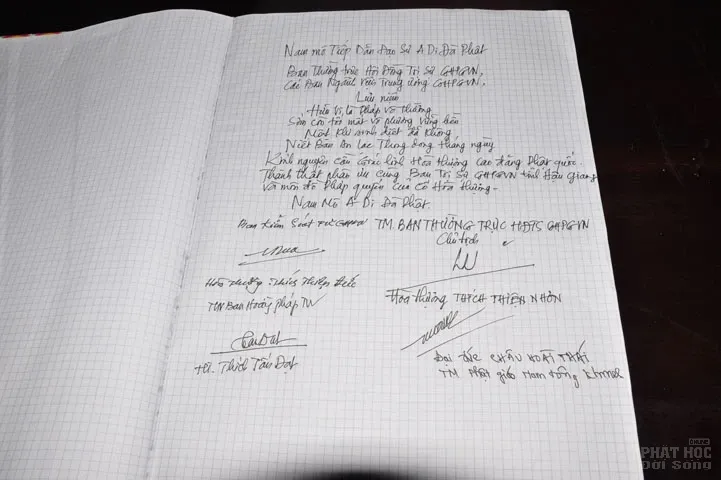 Nam mô Tiếp Dẫn Đạo Sư A Di Đà Phật
Ban Thường trực Hội Đồng Trị Sự GHPGVN,
Các Ban Ngành Viện Trung ương GHPGVN.
Lưu niệm
Hữu vi là pháp vô thường
Sắc còn tới mất vô phương vững bền
Một khi sinh diệt đã không
Niết Bàn an lạc Thung dong tháng ngày
Kính nguyện cầu Giác linh Hòa thượng Cao đăng Phật quốc.
Thành thật phân ưu cùng Ban Trị Sự GHPGVN tỉnh Hậu Giang
Và môn đồ pháp quyến của Cố Hòa thượng-
Nam Mô A Di Đà Phật.
Ban Kiểm Soát TƯ GHPGVN TM. BAN THƯỜNG TRỰC HĐTS GHPGVN
Chủ tịch
Hòa thượng Thích Thiện Đức
Hòa thượng THÍCH THIỆN NHƠN
TM Ban Hoằng pháp TW
TT. Thích Tấn Đạt
Đại đức CHÂU HOÀI THÁI
TM Phật giáo Nam tông Khmer
PHẬT HỌC
Đời Sống